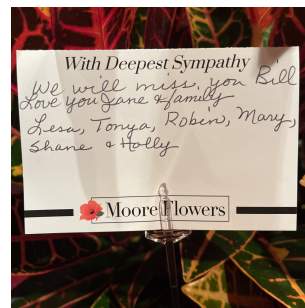 With Deepest Sympathy
We will miss you Bill
Love you Jane & family
Lesa, Tonya, Roben, Mary,
Shane & Holly
Moore Flowers